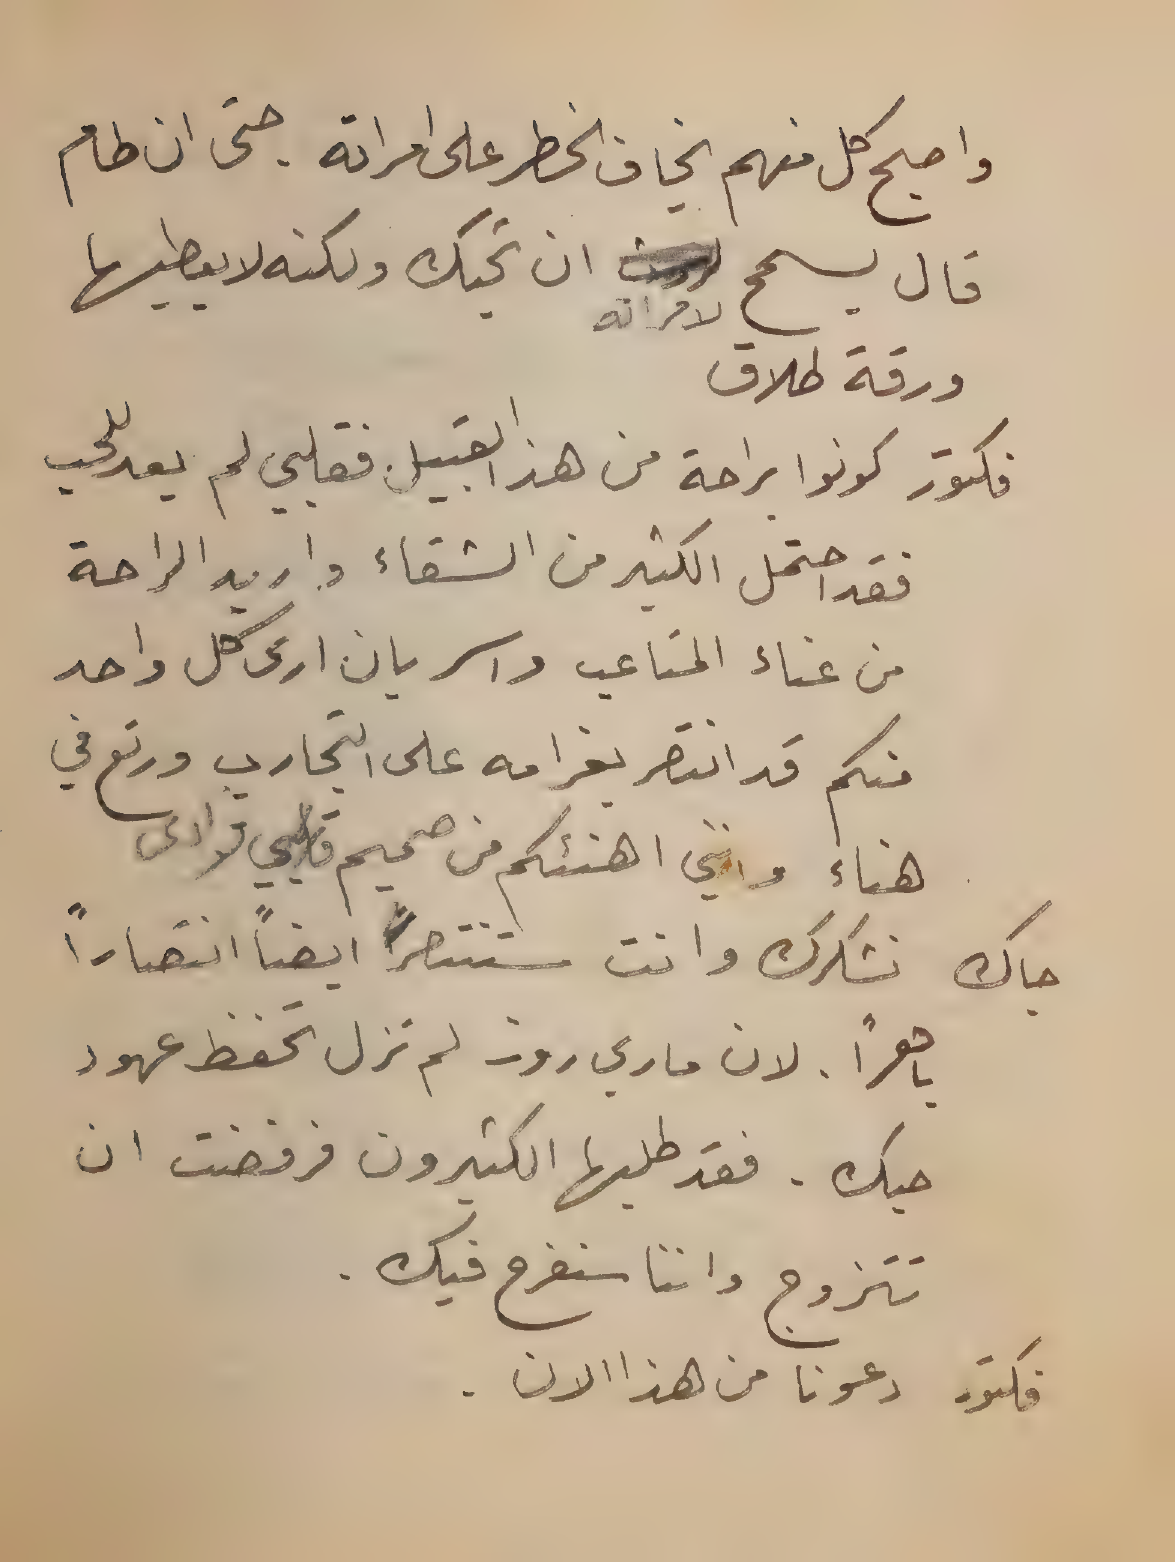 واصبح كل منهم يخاف الخطر على امراته. حتى ان طام
قال يسمح ان تحبك ولكنه لا يعطيها
لامراته
ورقة طلاق
فكتور كونوا براحة من هذا القبيل. فقلبي لم يعد للحب
فقد احتمل الكثير من الشقاء واريد الراحة
من عناء المتاعب واسر بان ارى كل واحد
منكم قد انتصر بغرامه على التجارب ورتع في
هناء وانني اهنئكم من صميم قلبي فوادي
جاك نشكرك وانت ستنتصر ايضاً انتصاراً
باهراً. لان ماري روز لم تزل تحفظ عهود
حبك. فقد طلبها الكثيرون فرفضت ان
تتزوج واننا سنفرح فيك.
فكتور دعونا من هذا الان.